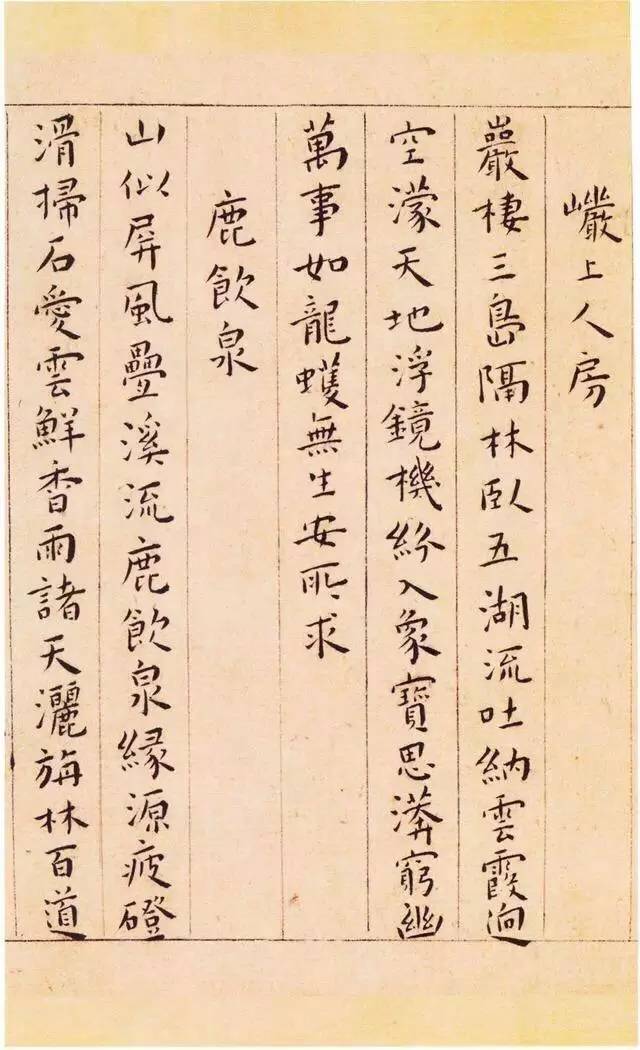 巖上人房
巖棲三島隔林臥五湖流吐納雲霞迥
空濛天地浮鏡機紛入象寶思潾窮幽
萬事如龍蠖無生安所求
鹿飲泉
山似屏風疊溪流鹿飲泉緣源疲磴
滑掃石愛雲鮮香雨諸天灑旃林百道